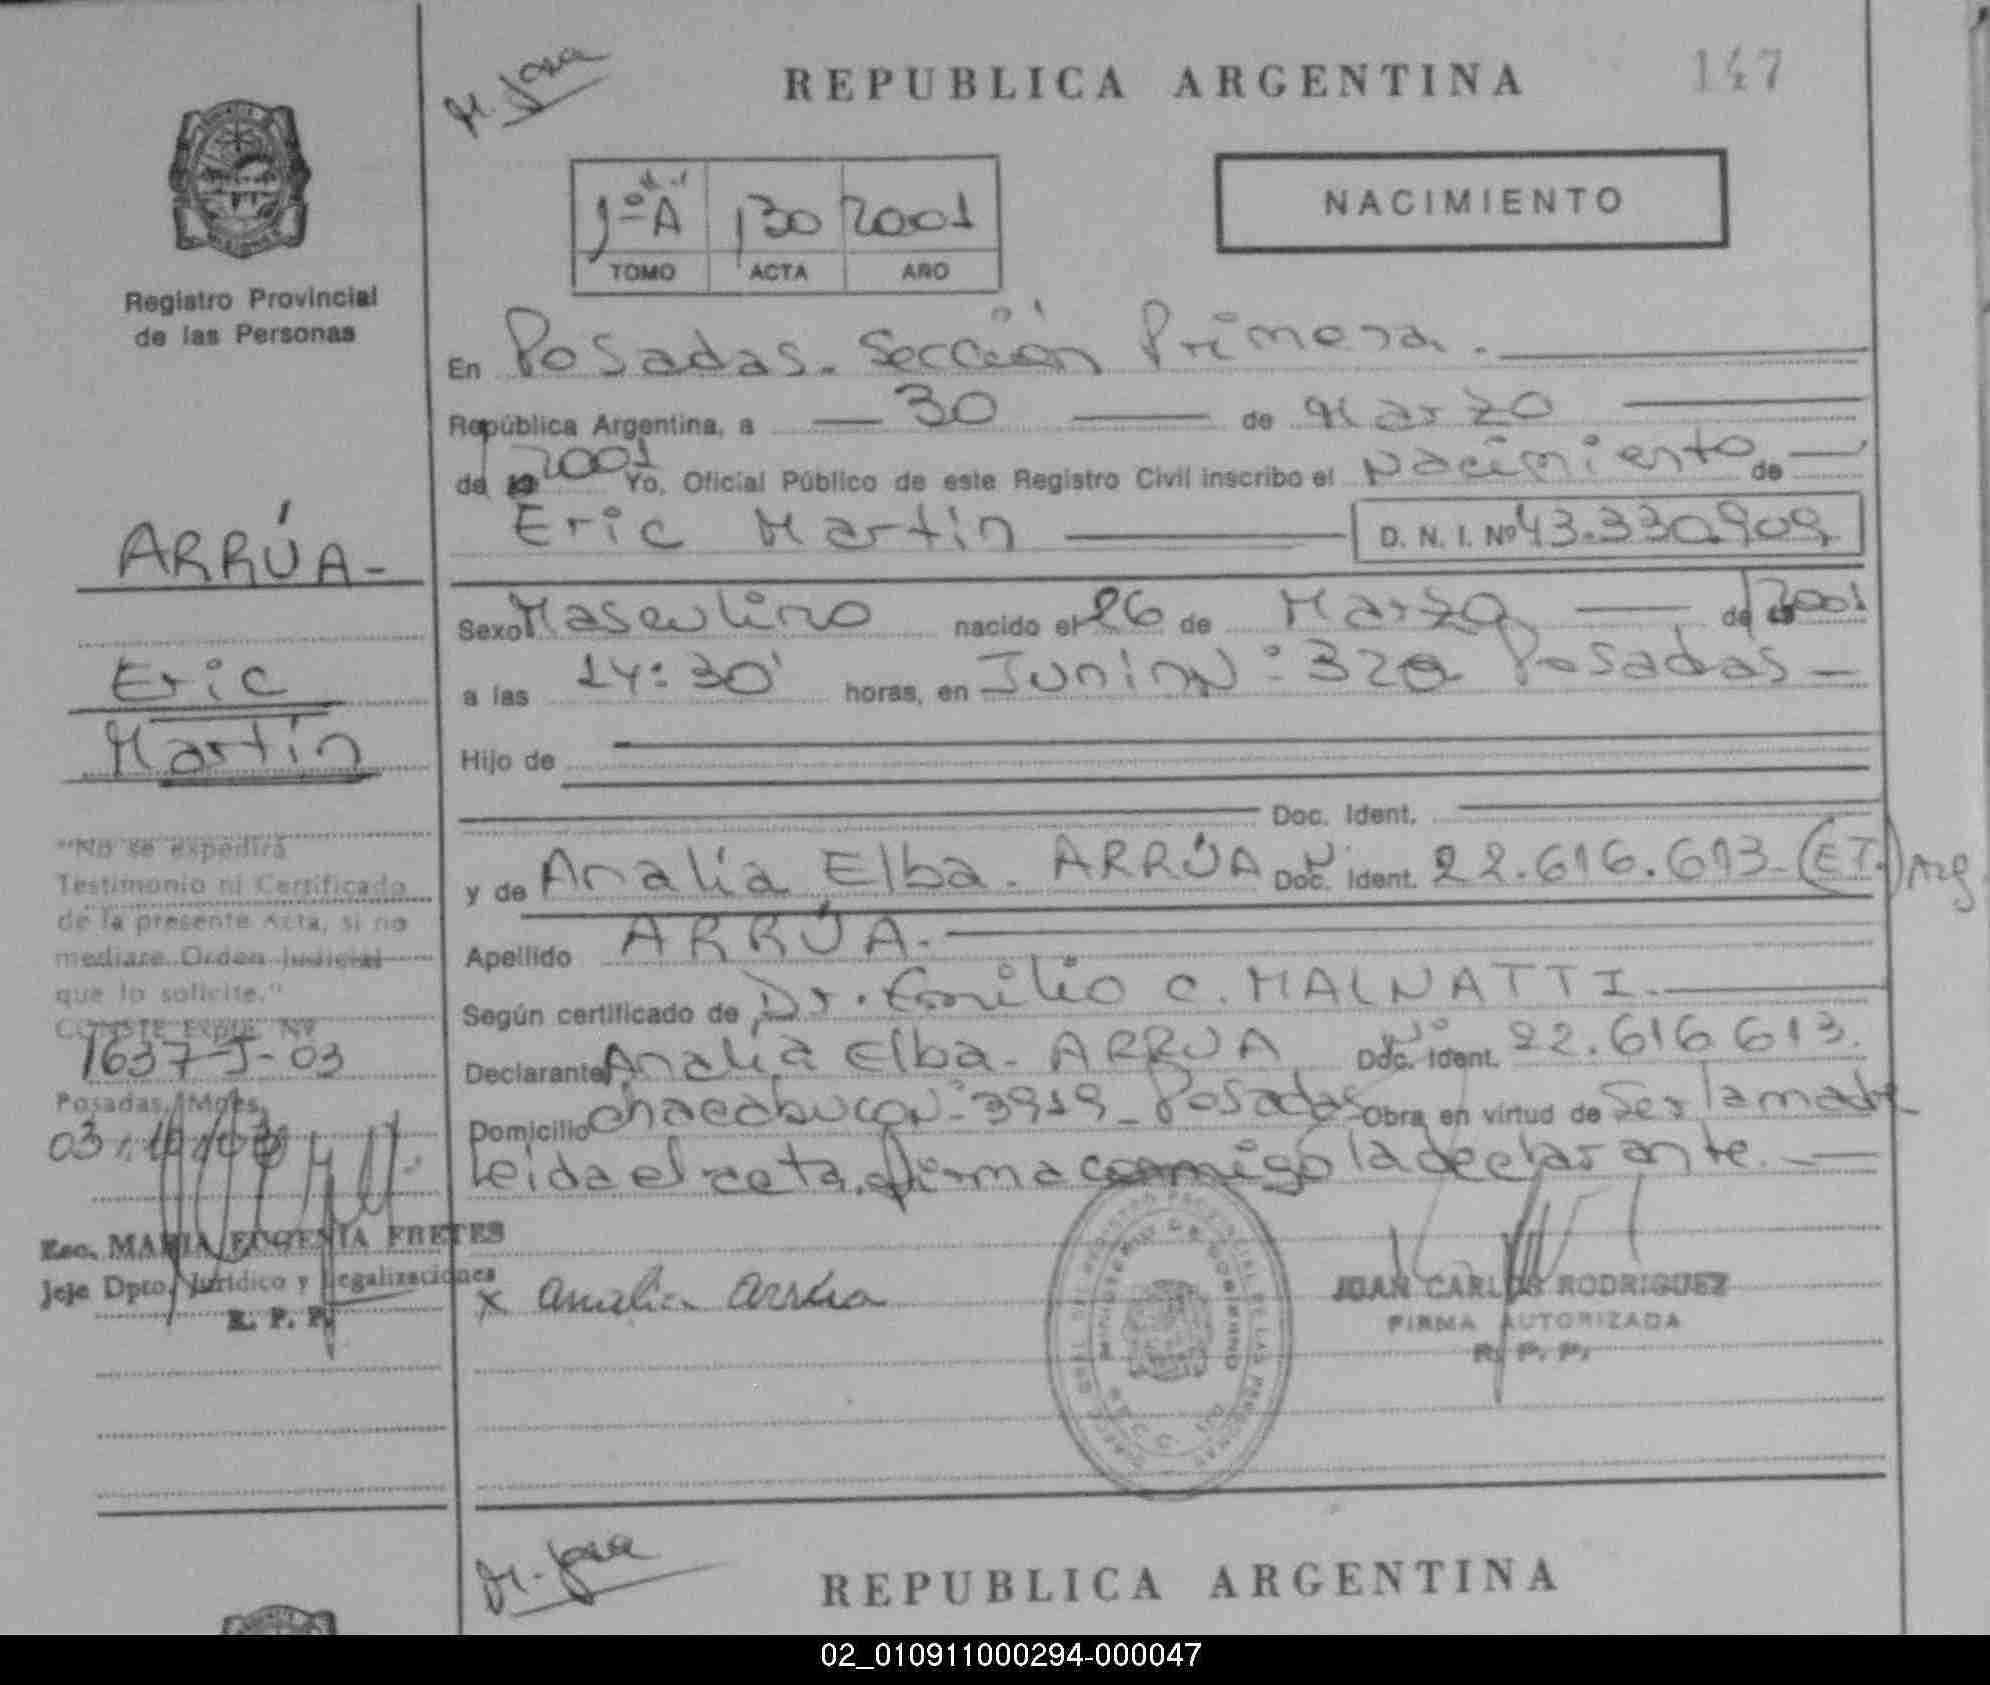 M. Jara
REPUBLICA ARGENTINA
147
1º A 130 2001
TOMO ACTA AÑO
NACIMIENTO
Registro Provincial
de las Personas
En Posadas. Sección Primera.
República Argentina, a 30 de Marzo
de 2001 Yo, Oficial Público de este Registro Civil inscribo el Nacimiento de
Eric Martín D. N. I. Nº 43.330.909
Sexo Masculino nacido el 26 de Marzo de 2001
a las 14:30' horas, en Junin Nº: 320 Posadas
Hijo de
Doc. Ident.
y de Analía Elba. ARRÚA Doc. Ident. Nº 22.616.613. (ET.) Arg
Apellido ARRÚA.
Según certificado de Dr. Emilio C. MALNATTI.
Declarante Analía Elba. ARRUA Doc. Ident. Nº 22.616.613.
Domicilio Chacabuco Nº 3919 - Posadas Obra en virtud de Ser la madre
Leida el acta, firma conmigo la declarante.
x Analia Arrúa
JUAN CARLOS RODRIGUEZ
FIRMA AUTORIZADA
R. P. P.
MINISTERIO DE GOBIERNO
ARRÚA-
Eric
Martín
"No se expedirá
Testimonio ni Certificado
de la presente Acta, si no
mediare Orden Judicial
que lo solicite."
CONSTE Expte. Nº
1637-J-03
Posadas, Mnes,
Esc. MARIA EUGENIA FRETES
Jefe Dpto. Jurídico y Legalizaciones
R. P. P.
M. Jara
REPUBLICA ARGENTINA
02_010911000294-000047